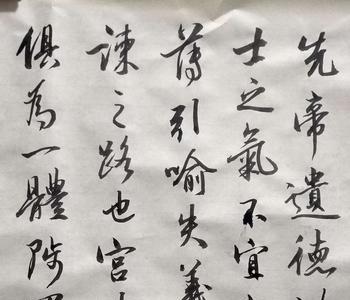 先帝遺德
士之氣不宜
薄引喻失義
諫之路也宮
俱為一體陟